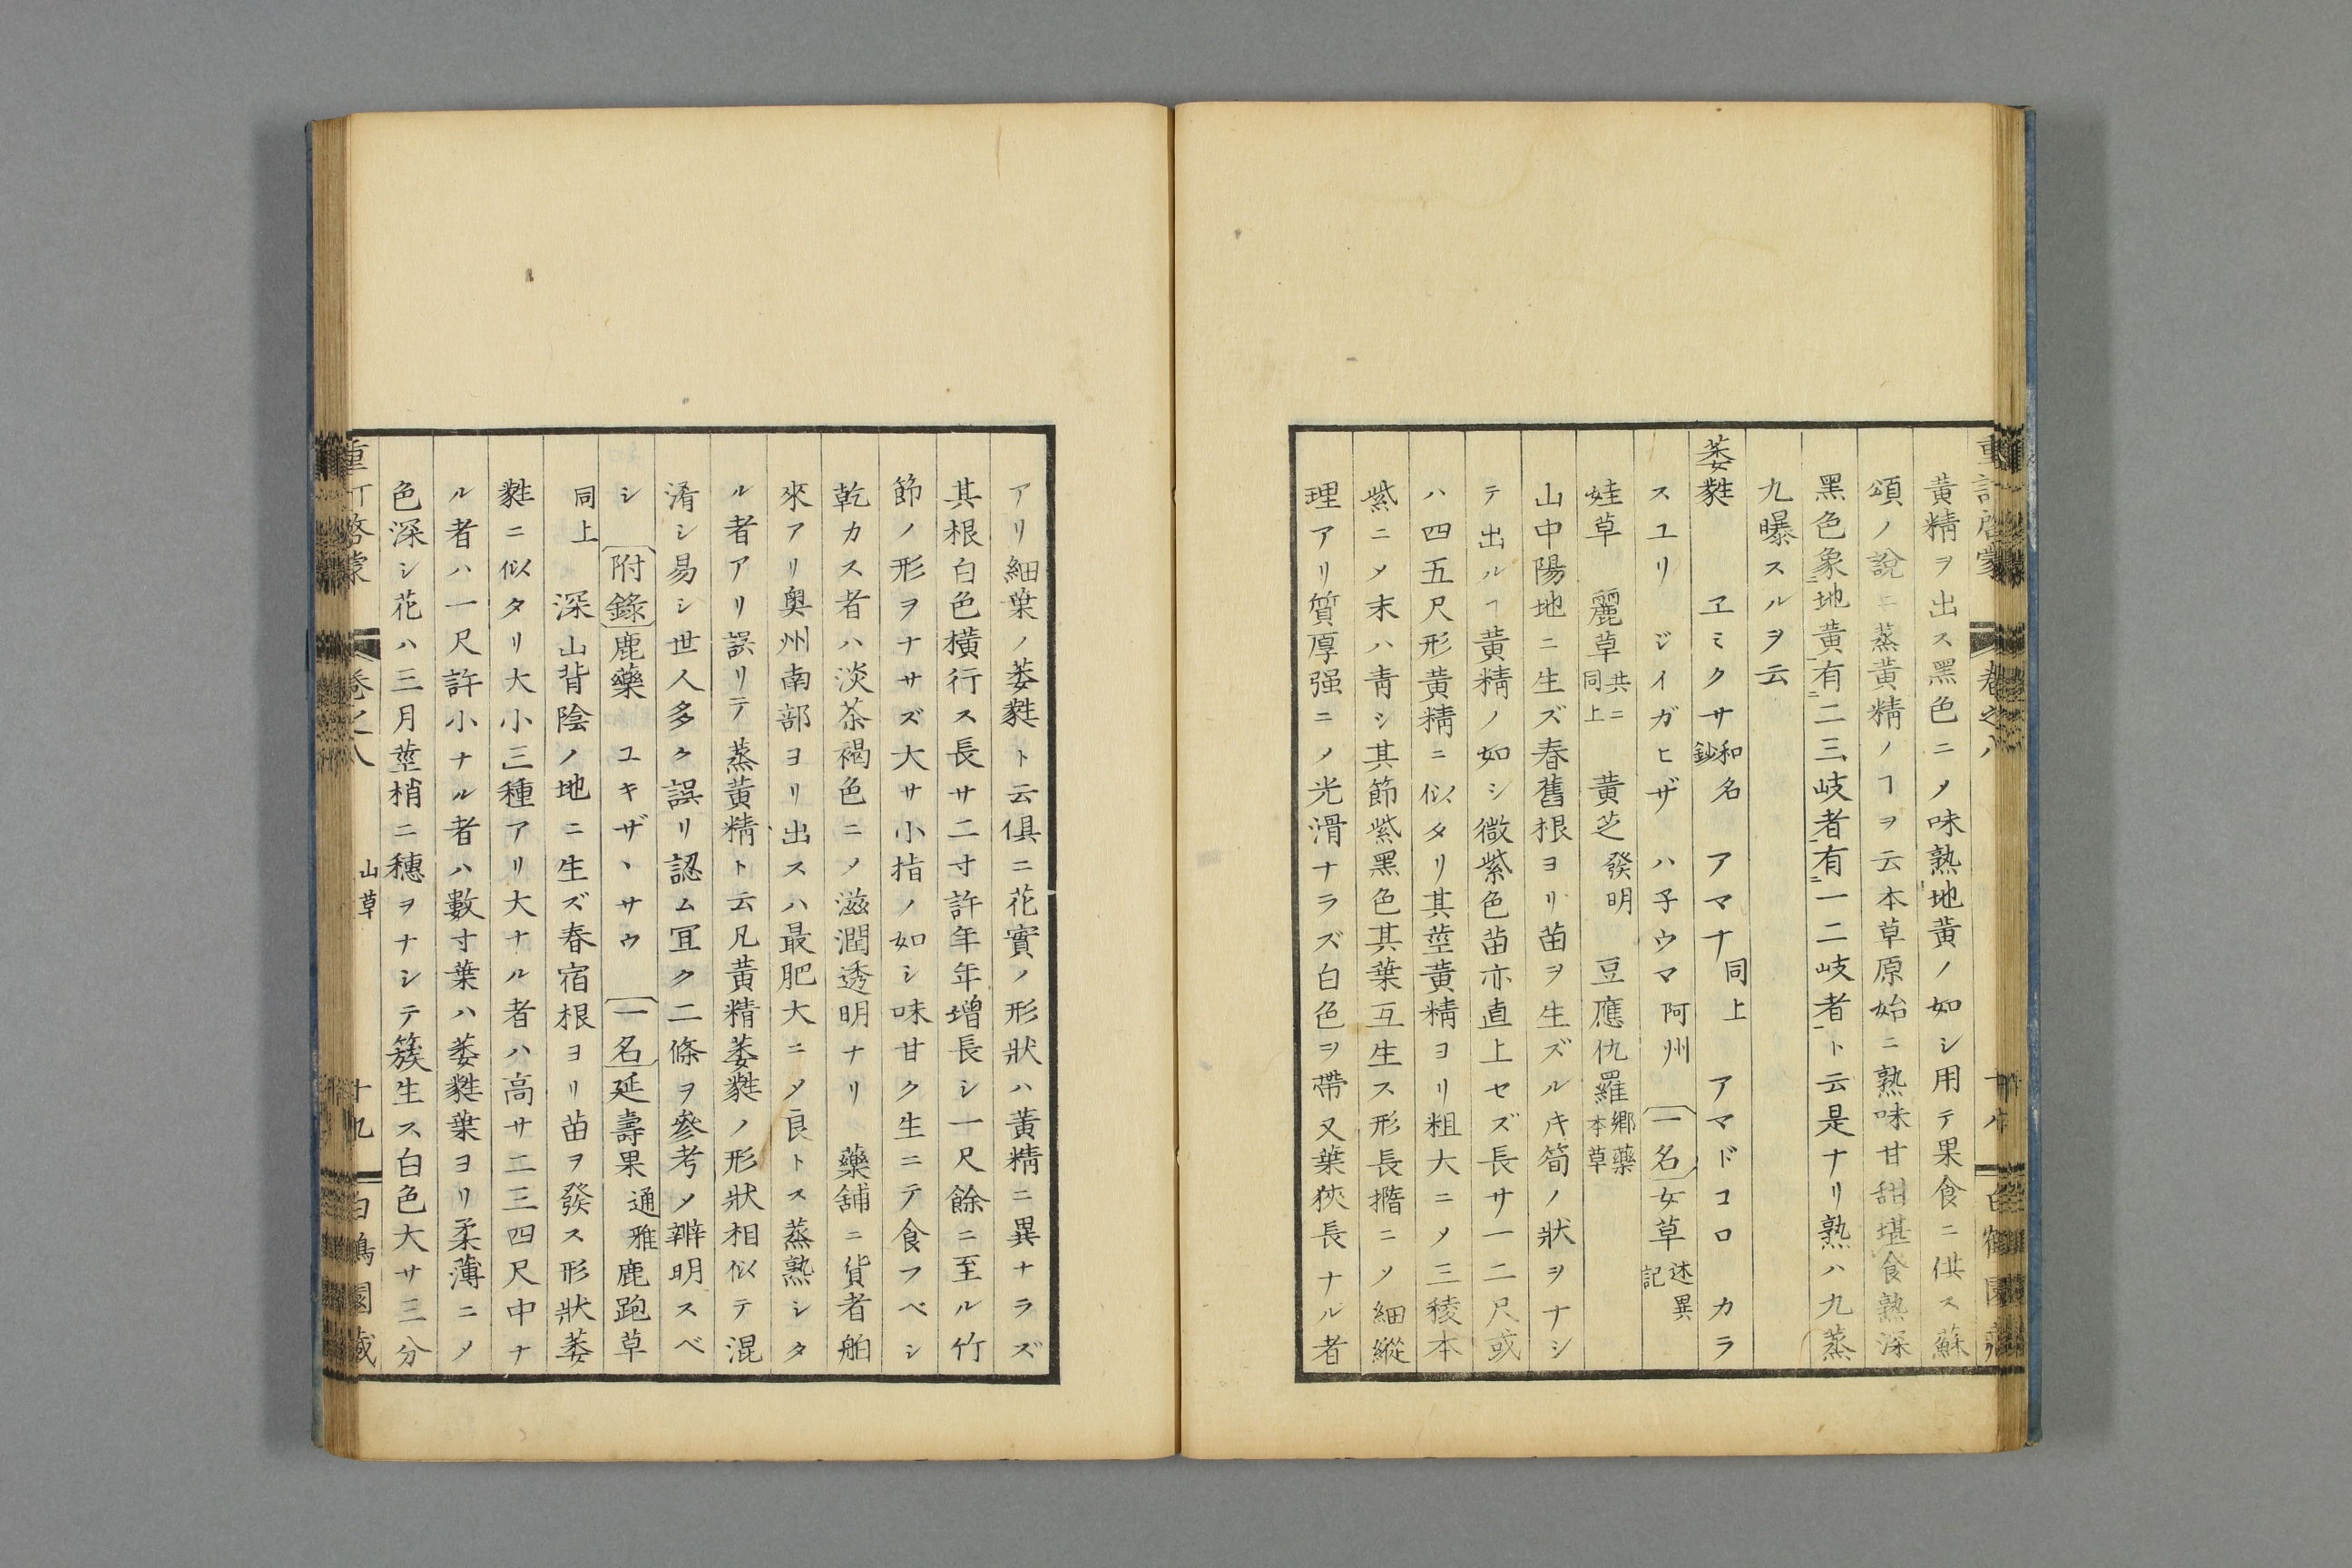 黃精ヲ出ス黑色ニノ味熟地黃ノ如シ用テ果食ニ供ス蘇
頌ノ說ニ蒸黃精ノヿヲ云本草原始ニ熟味甘甜堪食熟深
黑色象地黃有二三岐者有一二岐者ト云是ナリ熟ハ九蒸
九曝スルヲ云
萎蕤 ヱミクサ和名鈔 アマナ同上 アマドコロ カラ
スユリ ジイガヒザ ハ子ウマ阿州 一名女草述異記
娃草 麗草共ニ同上 黃芝發明 豆應仇羅鄕藥本草
山中陽地ニ生ズ春舊根ヨリ苗ヲ生ズルキ筍ノ狀ヲナシ
テ出ルヿ黃精ノ如シ微紫色苗亦直上セズ長サ一二尺或
ハ四五尺形黃精ニ似タリ其莖黃精ヨリ粗大ニノ三稜本
紫ニノ末ハ靑シ其節紫黑色其葉互生ス形長撱ニノ細縱
理アリ質厚强ニノ光滑ナラズ白色ヲ帶又葉狹長ナル者
重訂啓蒙 卷之八 十八
アリ細葉ノ萎蕤ト云俱ニ花實ノ形狀ハ黃精ニ異ナラズ
其根白色橫行ス長サ二寸許年年增長シ一尺餘ニ至ル竹
節ノ形ヲナサズ大サ小指ノ如シ味甘ク生ニテ食フベシ
乾カス者ハ淡茶褐色ニノ滋潤透明ナリ 藥舖ニ貨者舶
來アリ奧州南部ヨリ出スハ最肥大ニノ良トス蒸熟シタ
ル者アリ誤リテ蒸黃精ト云凡黃精萎蕤ノ形狀相似テ混
淆シ易シ世人多ク誤リ認ム冝ク二條ヲ參考ノ辨明スベ
シ 附錄鹿藥 ユキザヽサウ 一名延壽果通雅鹿跑草
同上 深山背陰ノ地ニ生ズ春宿根ヨリ苗ヲ發ス形狀萎
蕤ニ似タリ大小三種アリ大ナル者ハ高サ二三四尺中ナ
ル者ハ一尺許小ナル者ハ數寸葉ハ萎蕤葉ヨリ柔薄ニノ
色深シ花ハ三月莖梢ニ穗ヲナシテ簇生ス白色大サ三分
重訂啓蒙 卷之八 山草 十九